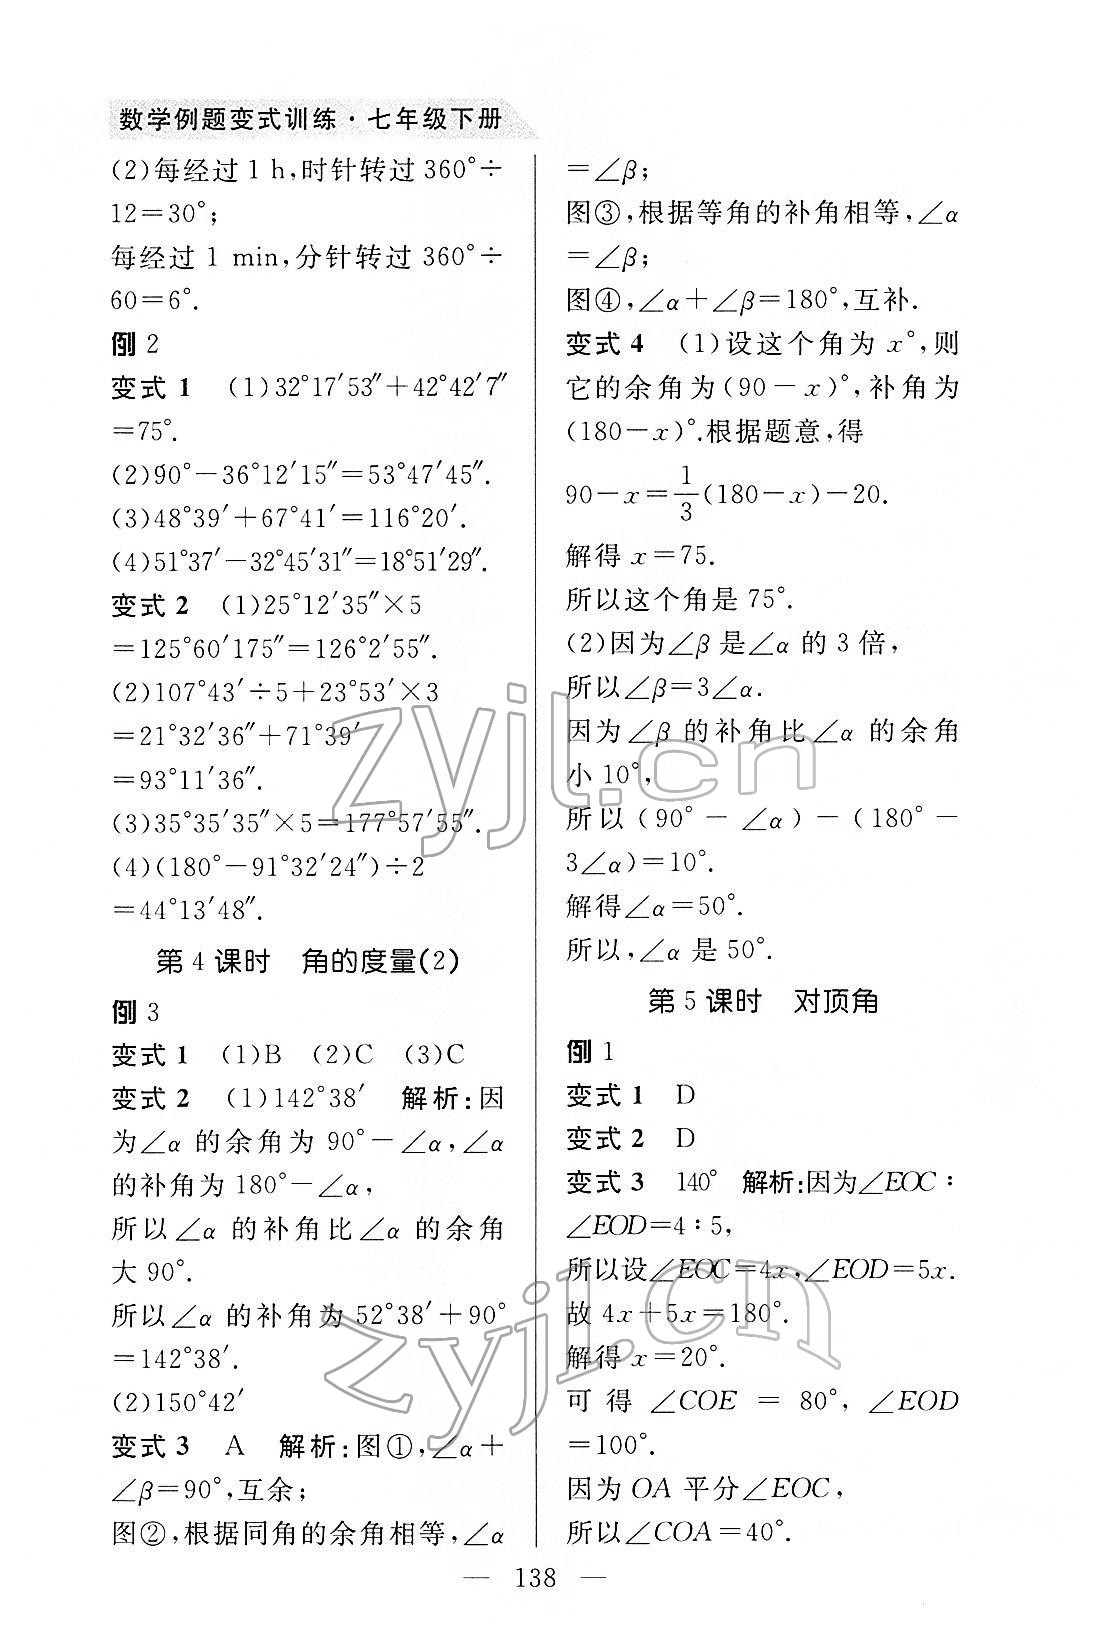 数学例题变式训练·七年级下册
(2)每经过 1 h,时针转过 360°÷
12=30°;
每经过 1 min,分针转过 360°÷
60=6°.
例 2
变式 1 (1)32°17′53″+42°42′7″
=75°.
(2)90°-36°12′15″=53°47′45″.
(3)48°39′+67°41′=116°20′.
(4)51°37′-32°45′31″=18°51′29″.
变式 2 (1)25°12′35″×5
=125°60′175″=126°2′55″.
(2)107°43′÷5+23°53′×3
=21°32′36″+71°39′
=93°11′36″.
(3)35°35′35″×5=177°57′55″.
(4)(180°-91°32′24″)÷2
=44°13′48″.
第 4 课时 角的度量(2)
例 3
变式 1 (1)B (2)C (3)C
变式 2 (1)142°38′ 解析:因
为∠α 的余角为 90°-∠α,∠α
的补角为 180°-∠α,
所以∠α 的补角比∠α 的余角
大 90°.
所以∠α 的补角为 52°38′+90°
=142°38′.
(2)150°42′
变式 3 A 解析:图①,∠α+
∠β=90°,互余;
图②,根据同角的余角相等,∠α
=∠β;
图③,根据等角的补角相等,∠α
=∠β;
图④,∠α+∠β=180°,互补.
变式 4 (1)设这个角为 x°,则
它的余角为(90-x)°,补角为
(180-x)°.根据题意,得
90-x=1/3(180-x)-20.
解得 x=75.
所以这个角是 75°.
(2)因为∠β是∠α 的 3 倍,
所以∠β=3∠α.
因为∠β 的补角比∠α 的余角
小 10°,
所以(90°-∠α)-(180°-
3∠α)=10°.
解得∠α=50°.
所以,∠α 是 50°.
第 5 课时 对顶角
例 1
变式 1 D
变式 2 D
变式 3 140° 解析:因为∠EOC∶
∠EOD=4∶5,
所以设∠EOC=4x,∠EOD=5x.
故 4x+5x=180°.
解得 x=20°.
可得 ∠COE = 80°, ∠EOD
=100°.
因为 OA 平分∠EOC,
所以∠COA=40°.
— 138 —
zyjl.cn
zyjl.cn